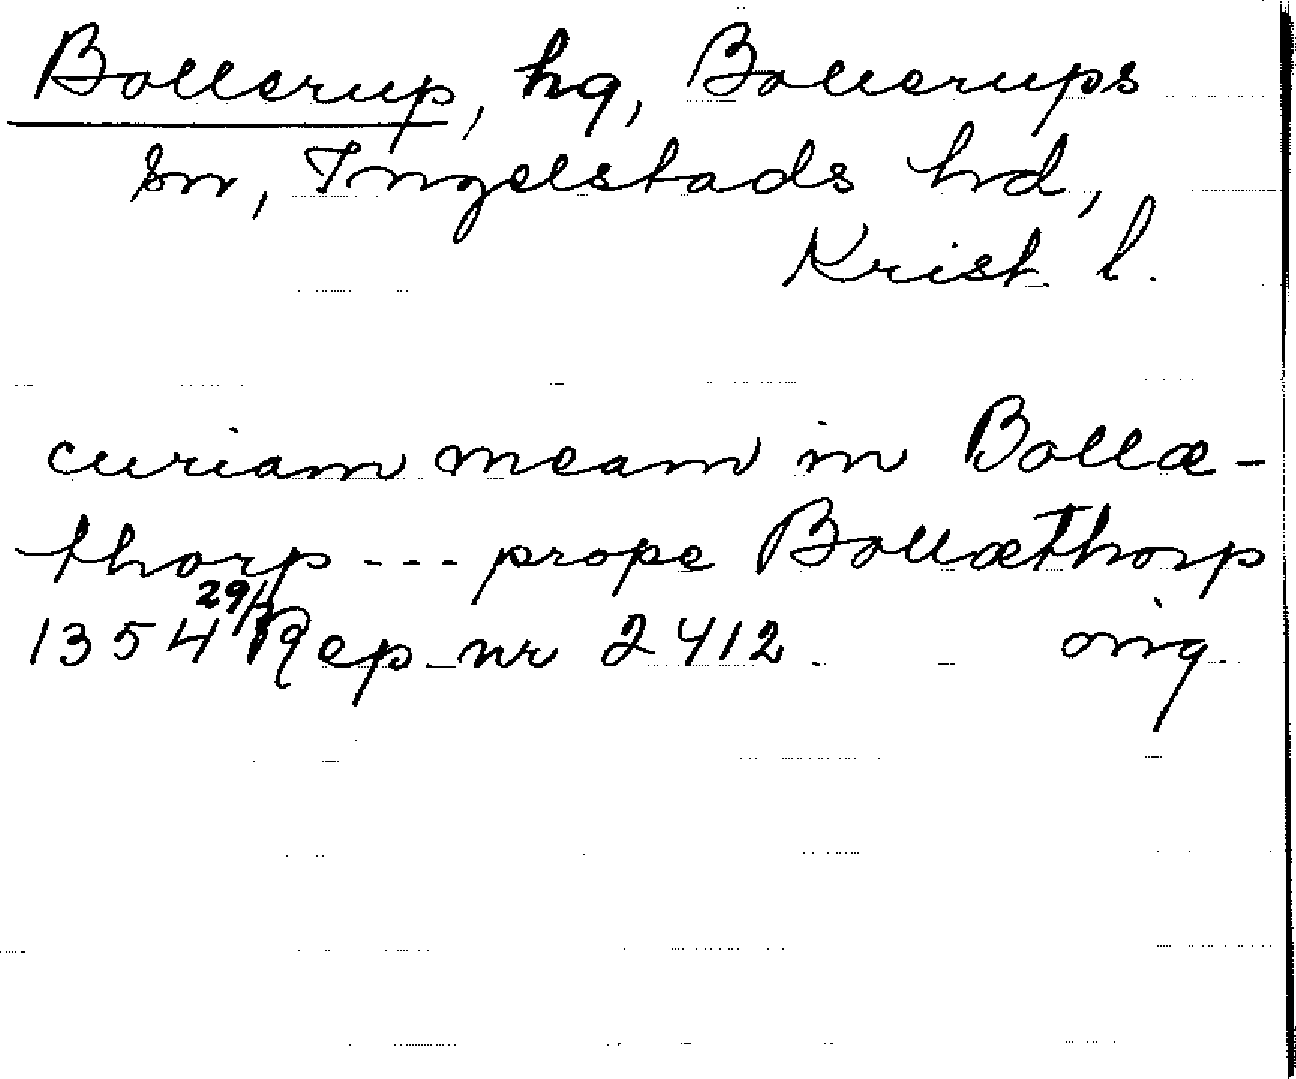 Bollerup, hg, Bollerups
sn, Ingelstads hd,
Krist. l.
curiam meam in Bollæ-
thorp --- prope Bollæthorp
1354 29/3 Rep nr 2412. orig.